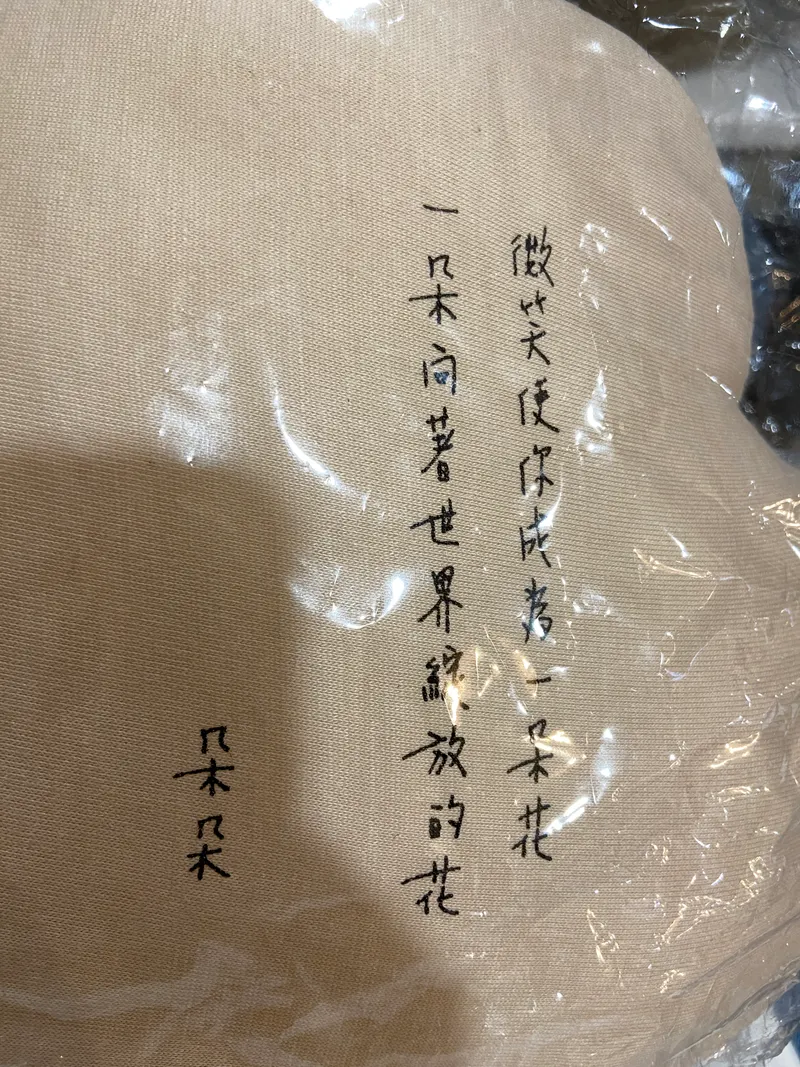 微笑使你成為一朵花
一朵向著世界綻放的花
朵朵